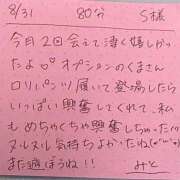 8/31 80分 S様
今月2回会えて凄く嬉しかっ
たよ♡♡オプションのくまさん
ロリパンツ履いて登場したら
いっぱい興奮してくれて、私
もめちゃくちゃ興奮しちゃった!!!
ヌルヌル気持ちよかったね
また遊ぼうね!! みと